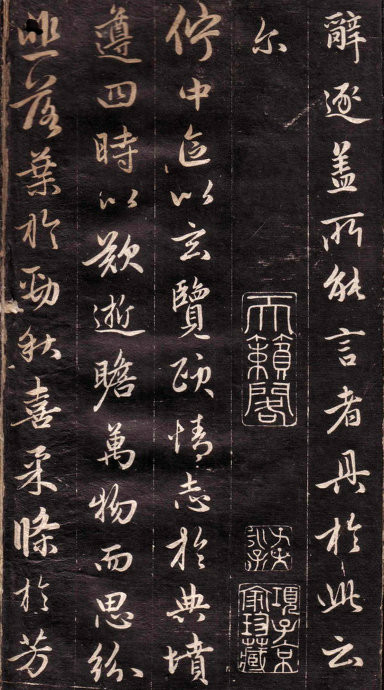 辭逐盖所能言者具於此云
尔
天籟閣
項子京家珍藏
佇中區以玄覽頤情志於典墳
遵四時以歎逝瞻萬物而思紛
悲落葉於勁秋喜柔條於芳